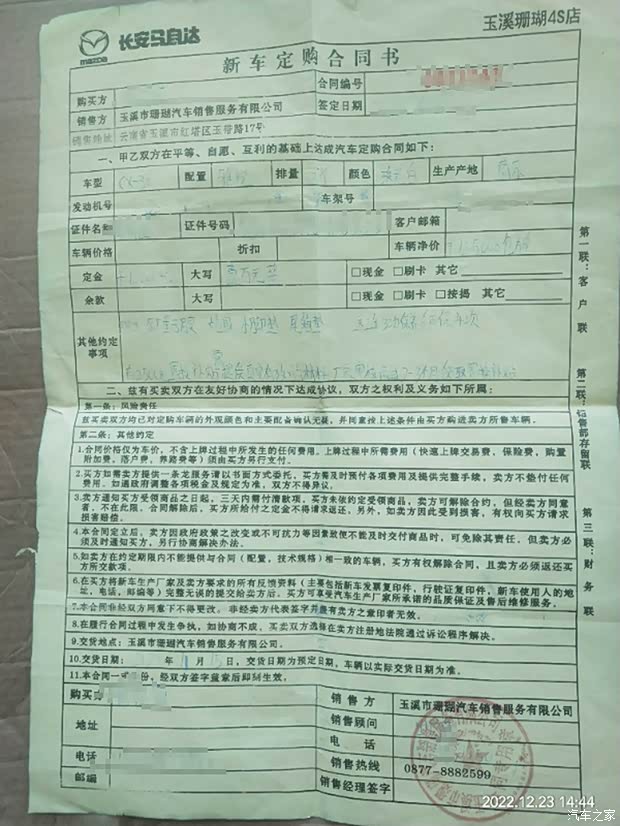 玉溪珊瑚4S店
mazda 长安马自达
新车定购合同书
购买方
合同编号
销售方 玉溪市珊瑚汽车销售服务有限公司 签定日期
销售地址 云南省玉溪市红塔区玉带路17号
一、甲乙双方在平等、自愿、互利的基础上达成汽车定购合同如下:
车型 CX-30 配置 排量 颜色 生产产地
发动机号 车架号
证件名称 证件号码 客户邮箱
车辆价格 折扣 车辆净价
定金 大写 壹万元整 □现金 □刷卡 其它
余款 大写 □现金 □刷卡 □按揭 其它
其他约定
事项
二、兹有买卖双方在友好协商的情况下达成协议,双方之权利及义务如下所属:
第一条:风险责任
兹买卖双方均已对定购车辆的外观颜色和主要配备确认无误,并同意按上述条件由买方购进卖方所售车辆。
第二条:其他约定
1.合同价格仅为车价,不含上牌过程中所发生的任何费用。上牌过程中所需费用(快速上牌交易费,保险费,购置
附加费,落户费,养路费等)须由买方另行支付。
2.买方如需卖方提供一条龙服务请以书面方式委托,买方需及时预付各项费用及提供完整手续,卖方不垫付任何
费用。如遇政府调整各项税金及规定为准,双方不得异议。
3.卖方通知买方受领商品之日起,三天内需付清款项,买方未依约定受领商品,卖方可解除合约,但经卖方同意
者,不在此限。合同解除后,买方所给付之定金不得请求返还,另外,如卖方因此受到损害,有权向买方请求
损害赔偿。
4.本合同定立后,卖方因政府政策之改变或不可抗力等因素致使不能及时交付商品时,可免除其责任,但卖方必
须及时通知买方,另行协商解决办法。
5.如卖方在约定期限内不能提供与合同(配置,技术规格)相一致的车辆,买方有权解除合同,且卖方必须返还买
方所交款项。
6.在买方将新车生产厂家及卖方要求的所有反馈资料(主要包括新车发票复印件,行驶证复印件,新车使用人的地
址,电话,邮编等)完整无误的提交给卖方后。买方可享受汽车生产厂家所承诺的品质保证及售后维修服务。
7.本合同非经双方同意下不得更改。非经卖方代表签字并盖有卖方之章印者无效。
8.在履行合同过程中发生争执,如协商不成,买卖双方选择在卖方注册地法院通过诉讼程序解决。
9.交货地点:玉溪市珊瑚汽车销售服务有限公司。
10.交货日期: 年 月 15日,交货日期为预定日期,车辆以实际交货日期为准。
11.本合同一式 份,经双方签字盖章后即刻生效。
购买方
地址
电话
邮编
销售方 玉溪市珊瑚汽车销售服务有限公司
销售顾问
电话
销售热线 0877-8882599
销售经理签字
第一联:客户联
第二联:销售部存留联
第三联:财务联
2022.12.23 14:44
汽车之家